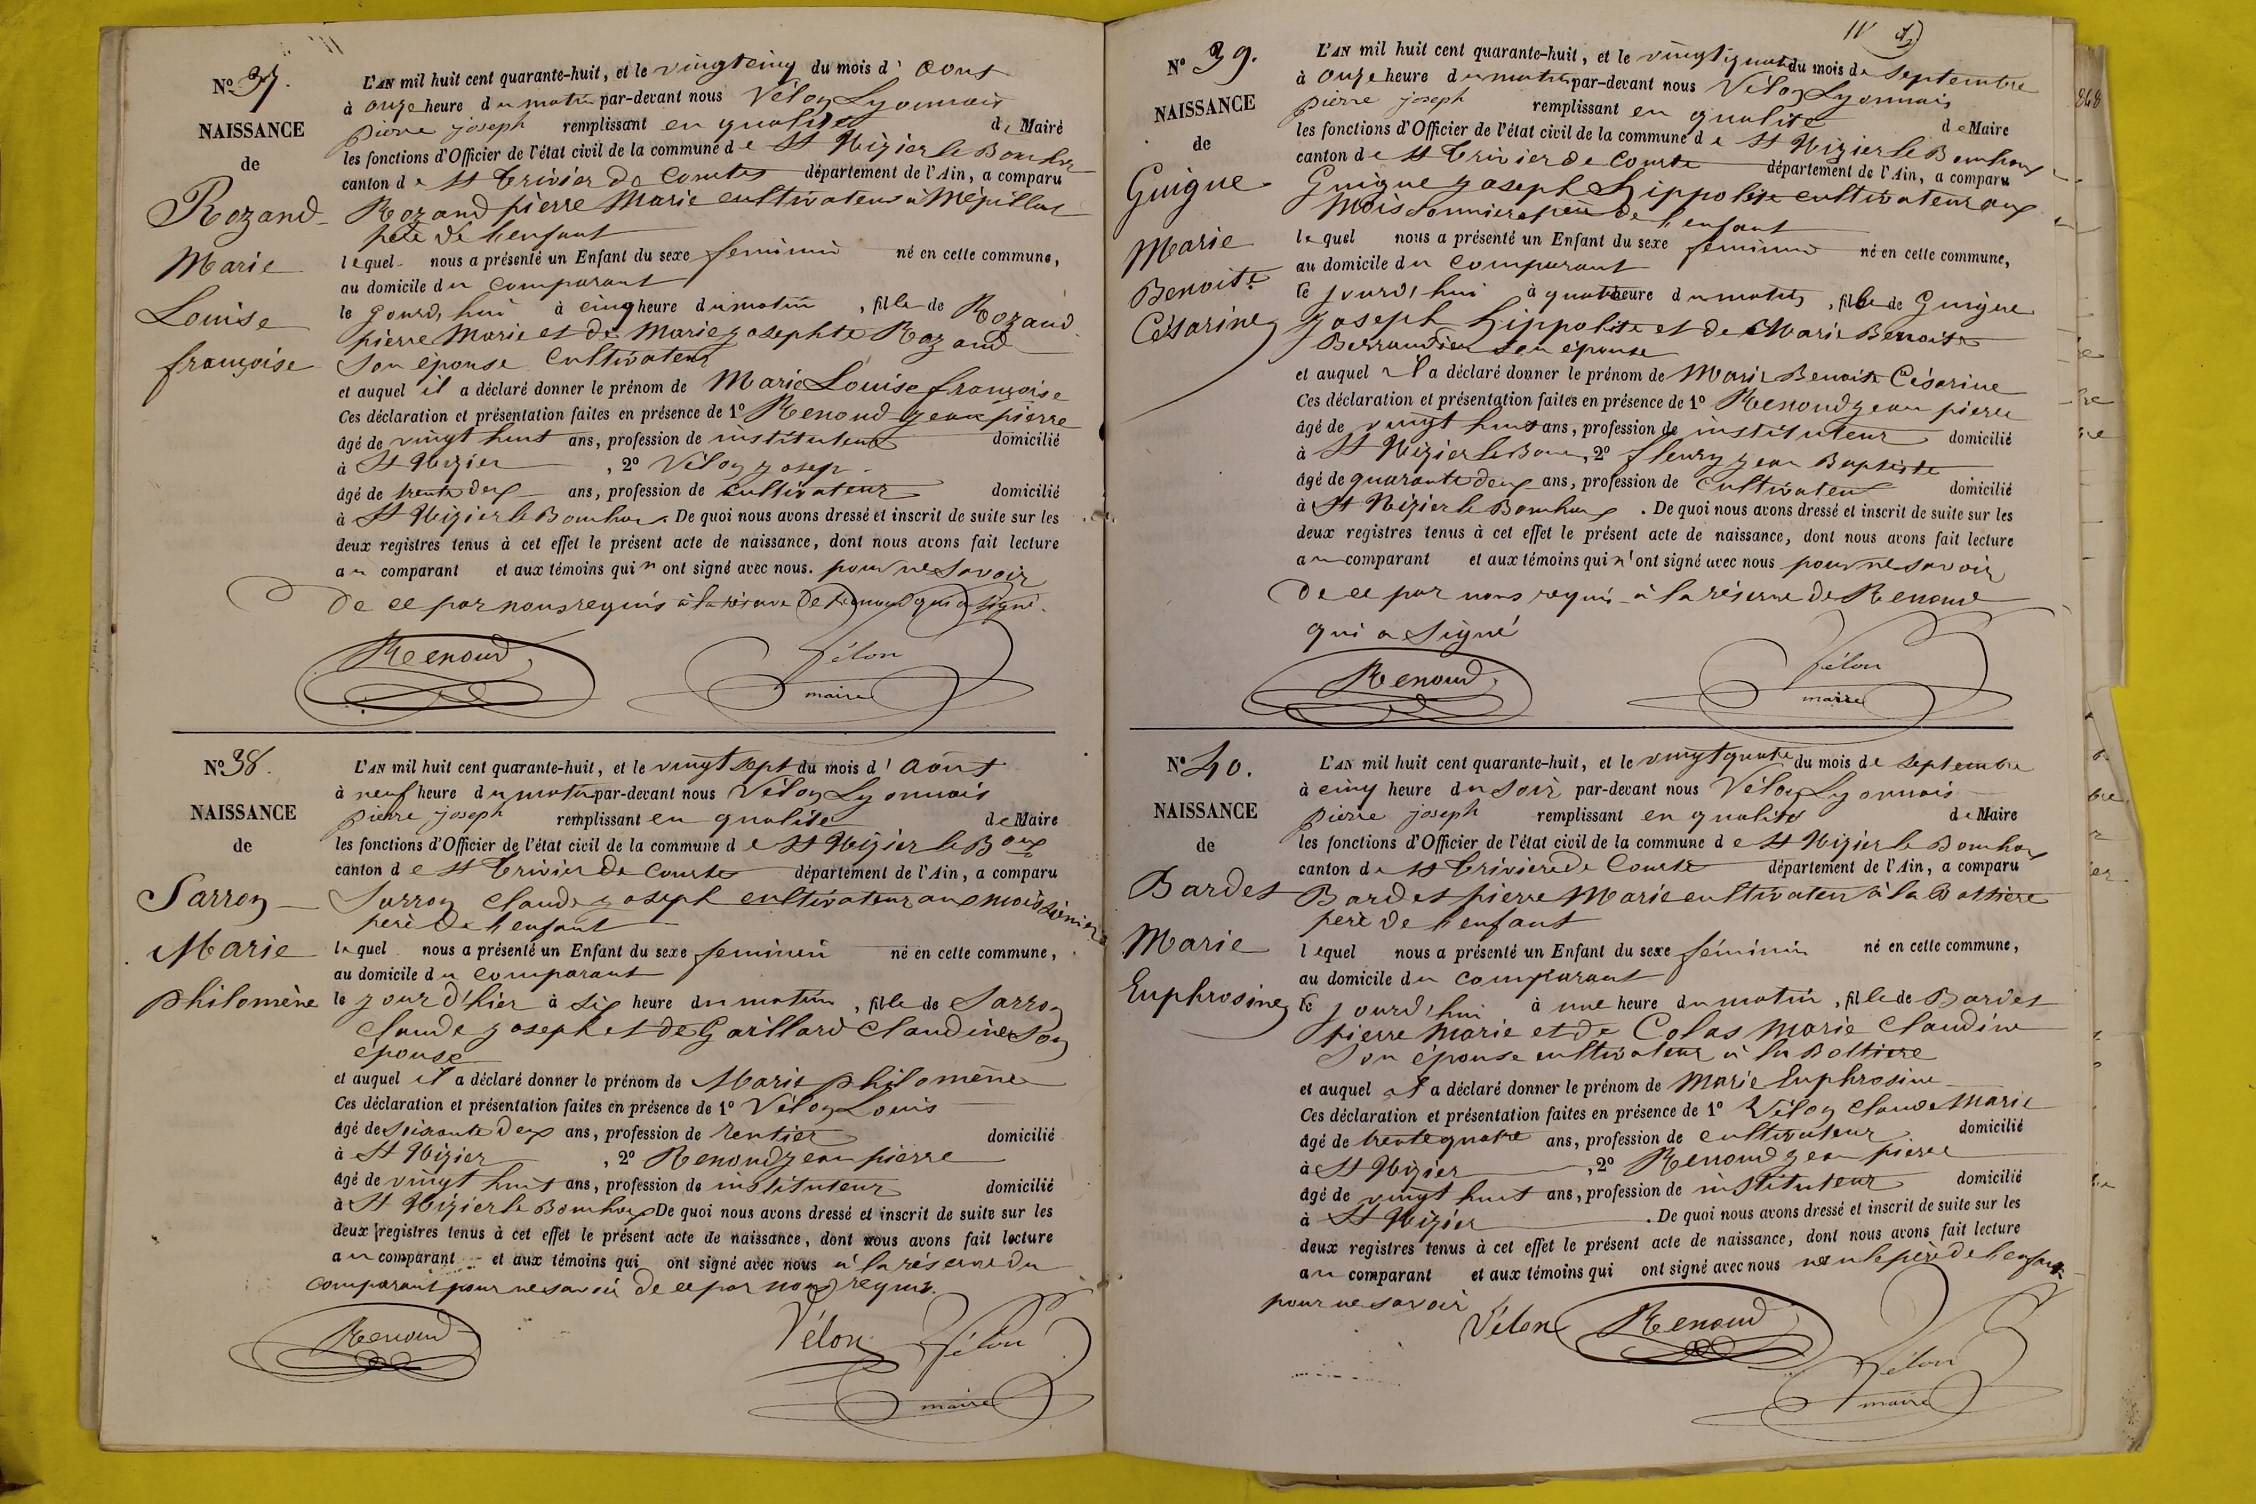 No 37.
NAISSANCE
de
Rozand
Marie
Louise
françoise
L'AN mil huit cent quarante-huit, et le vingtcinq du mois d' aout
à onze heure du matin par-devant nous Vélon Lyonnais
pierre joseph remplissant en qualité de Maire
les fonctions d'Officier de l'état civil de la commune de St Nizier le Bouhoux
canton de St Trivier de Courtes département de l'Ain, a comparu
Rozand pierre Marie cultivateur à Mépillat
père de l'enfant
lequel nous a présenté un Enfant du sexe feminin né en cette commune,
au domicile du comparant
le jourd'hui à cinq heure du matin, fille de Rozand
pierre Marie et de Marie josephte Rozand
son épouse cultivateur
et auquel il a déclaré donner le prénom de Marie Louise françoise
Ces déclaration et présentation faites en présence de 1º Renoud jean pierre
âgé de vingt huit ans, profession de instituteur domicilié
à St Nizier, 2º Vélon josep
âgé de trente deux ans, profession de cultivateur domicilié
à St Nizier le Bouhoux. De quoi nous avons dressé et inscrit de suite sur les
deux registres tenus à cet effet le présent acte de naissance, dont nous avons fait lecture
au comparant et aux témoins qui n'ont signé avec nous. pour ne savoir
de ce par nous requis à la réserve de Renoud qui a signé.
Renoud Vélon
maire
No 38.
NAISSANCE
de
Sarron
Marie
philomène
L'AN mil huit cent quarante-huit, et le vingt sept du mois d' aout
à neuf heure du matin par-devant nous Vélon Lyonnais
pierre joseph remplissant en qualité de Maire
les fonctions d'Officier de l'état civil de la commune de St Nizier le Boux
canton de St Trivier de Courtes département de l'Ain, a comparu
Sarron claude joseph cultivateur aux moissonniers
père de l'enfant
lequel nous a présenté un Enfant du sexe feminin né en cette commune,
au domicile du comparant
le jour d'hier à six heure du matin, fille de Sarron
claude joseph et de Gaillard claudine son
épouse
et auquel il a déclaré donner le prénom de Marie philomène
Ces déclaration et présentation faites en présence de 1º Vélon Louis
âgé de soixante deux ans, profession de rentier domicilié
à St Nizier, 2º Renoud jean pierre
âgé de vingt huit ans, profession de instituteur domicilié
à St Nizier le Bouhoux De quoi nous avons dressé et inscrit de suite sur les
deux registres tenus à cet effet le présent acte de naissance, dont nous avons fait lecture
au comparant et aux témoins qui ont signé avec nous à la réserve du
comparant pour ne savoir de ce par nous requis.
Renoud Vélon Vélon
maire
No 39.
NAISSANCE
de
Guigue
Marie
Benoite
Césarine
L'AN mil huit cent quarante-huit, et le vingt quatre du mois de septembre
à onze heure du matin par-devant nous Vélon Lyonnais
pierre joseph remplissant en qualité de Maire
les fonctions d'Officier de l'état civil de la commune de St Nizier le Bouhoux
canton de St Trivier de Courte département de l'Ain, a comparu
Guigue joseph hippolite cultivateur aux
Moissonniers père de l'enfant
lequel nous a présenté un Enfant du sexe feminin né en cette commune,
au domicile du comparant
le jourd'hui à quatre heure du matin, fille de Guigue
joseph hippolite et de Marie Benoite
son épouse
et auquel il a déclaré donner le prénom de Marie Benoite Césarine
Ces déclaration et présentation faites en présence de 1º Renoud jean pierre
âgé de vingt huit ans, profession de instituteur domicilié
à St Nizier le Boux, 2º fleury jean Baptiste
âgé de quarante deux ans, profession de cultivateur domicilié
à St Nizier le Bouhoux. De quoi nous avons dressé et inscrit de suite sur les
deux registres tenus à cet effet le présent acte de naissance, dont nous avons fait lecture
au comparant et aux témoins qui n'ont signé avec nous pour ne savoir
de ce par nous requis à la réserve de Renoud
qui a signé
Renoud Vélon
maire
No 40.
NAISSANCE
de
Bardet
Marie
Euphrosine
L'AN mil huit cent quarante-huit, et le vingt quatre du mois de septembre
à cinq heure du soir par-devant nous Vélon Lyonnais
pierre joseph remplissant en qualité de Maire
les fonctions d'Officier de l'état civil de la commune de St Nizier le Bouhoux
canton de St Trivier de Courte département de l'Ain, a comparu
Bardet pierre Marie cultivateur à la Bottiere
père de l'enfant
lequel nous a présenté un Enfant du sexe féminin né en cette commune,
au domicile du comparant
le jourd'hui à une heure du matin, fille de Bardet
pierre Marie et de Colas Marie claudine
son épouse cultivateur à la Bottiere
et auquel il a déclaré donner le prénom de Marie Euphrosine
Ces déclaration et présentation faites en présence de 1º Vélon claude Marie
âgé de trente quatre ans, profession de cultivateur domicilié
à St Nizier, 2º Renoud jean pierre
âgé de vingt huit ans, profession de instituteur domicilié
à St Nizier. De quoi nous avons dressé et inscrit de suite sur les
deux registres tenus à cet effet le présent acte de naissance, dont nous avons fait lecture
au comparant et aux témoins qui ont signé avec nous non le père de l'enfant
pour ne savoir
Vélon Renoud Vélon
maire